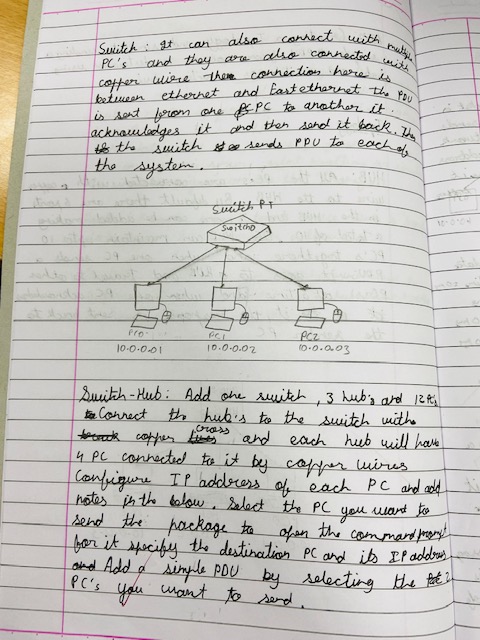 Switch : It can also connect with multiple
PC's and they are also connected with
copper wire the connection here is
between ethernet and Fastethernet the PDU
is sent from one PC to another it.
acknowledges it and then send it back. The
the switch sends PDU to each of
the system.
Switch PT
Switch0
PC0 PC1 PC2
10.0.0.01 10.0.0.02 10.0.0.03
Switch-Hub: Add one switch, 3 hub's and 12 PC's
Connect the hub's to the switch with
copper cross and each hub will have
4 PC connected to it by copper wires
Configure IP address of each PC and add
notes in the below. Select the PC you want to
send the package to open the command prompt
for it specify the destination PC and its IP address
Add a simple PDU by selecting the 2
PC's you want to send.